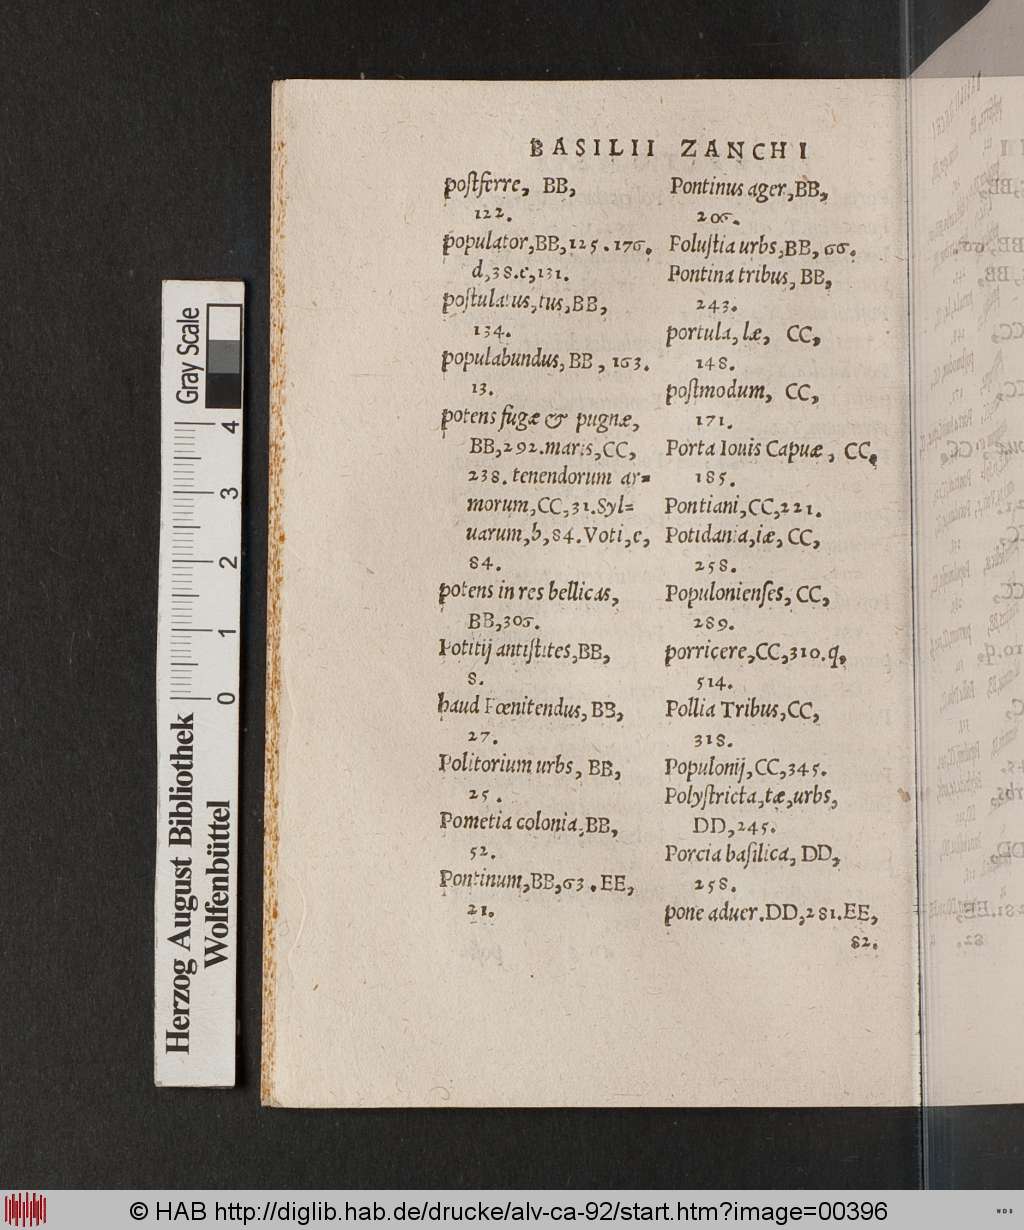 BASILII ZANCHI
poſtferre, BB,
122.
populator,BB,125.176.
d,38.c,131.
poſtulatus,tus,BB,
134.
populabundus, BB, 163.
13.
potens fugæ & pugnæ,
BB,292.maris,CC,
238. tenendorum ar=
morum,CC,31.Syl=
uarum,b,84.Voti,c,
84.
potens in res bellicas,
BB,306.
Potitij antiſtites,BB,
8.
haud Pœnitendus, BB,
27.
Politorium urbs, BB,
25.
Pometia colonia,BB,
52.
Pontinum,BB,63. EE,
21.
Pontinus ager,BB,
206.
Poluſtia urbs,BB, 66.
Pontina tribus, BB,
243.
portula, læ, CC,
148.
poſtmodum, CC,
171.
Porta Iouis Capuæ, CC,
185.
Pontiani,CC,221.
Potidania,iæ, CC,
258.
Populonienſes, CC,
289.
porricere,CC,310.q,
514.
Pollia Tribus,CC,
318.
Populonij,CC,345.
Polyſtricta,tæ,urbs,
DD,245.
Porcia baſilica, DD,
258.
pone aduer.DD,281.EE,
82.
Gray Scale
4
3
2
1
0
Herzog August Bibliothek
Wolfenbüttel
© HAB http://diglib.hab.de/drucke/alv-ca-92/start.htm?image=00396